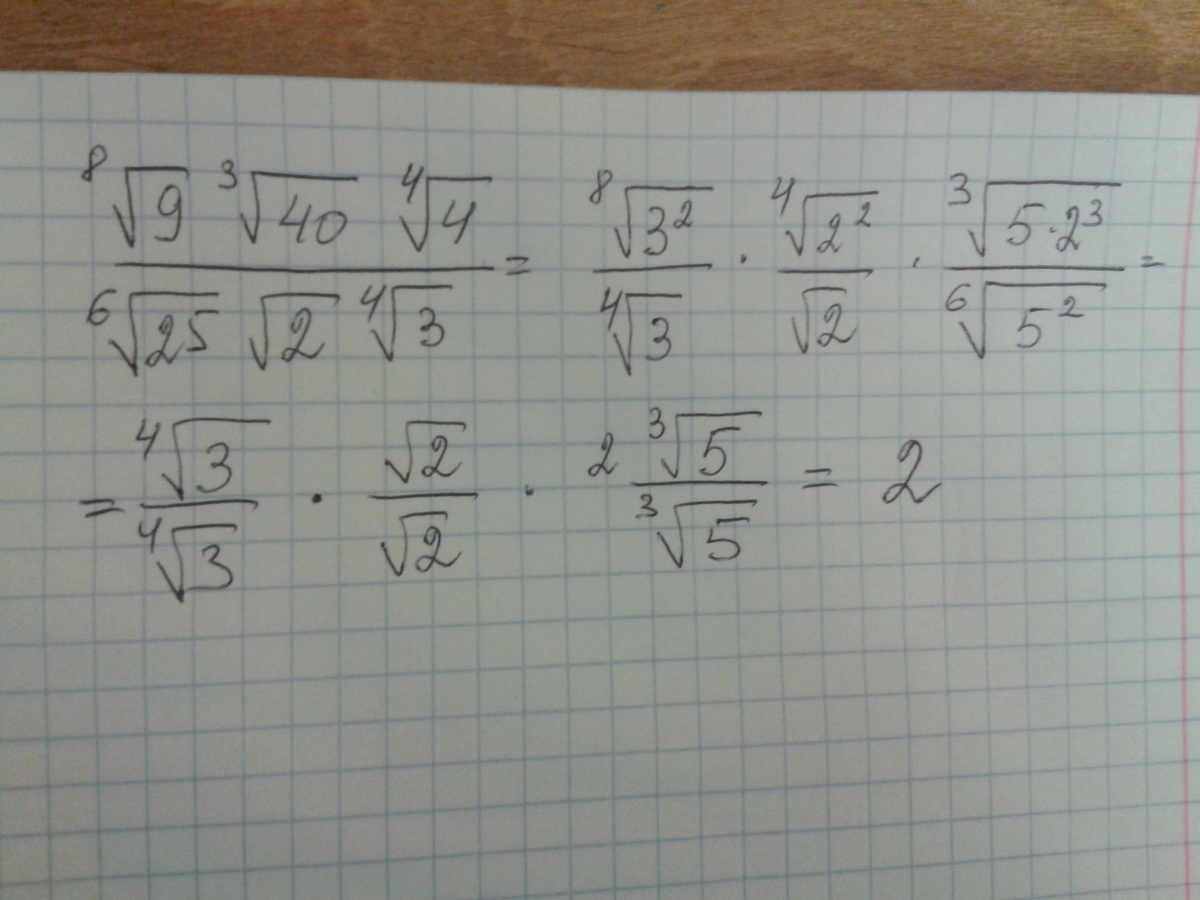 \frac{\sqrt[8]{9} \sqrt[3]{40} \sqrt[4]{4}}{\sqrt[6]{25} \sqrt{2} \sqrt[4]{3}} = \frac{\sqrt[8]{3^2}}{\sqrt[4]{3}} \cdot \frac{\sqrt[4]{2^2}}{\sqrt{2}} \cdot \frac{\sqrt[3]{5 \cdot 2^3}}{\sqrt[6]{5^2}} =
= \frac{\sqrt[4]{3}}{\sqrt[4]{3}} \cdot \frac{\sqrt{2}}{\sqrt{2}} \cdot 2 \frac{\sqrt[3]{5}}{\sqrt[3]{5}} = 2